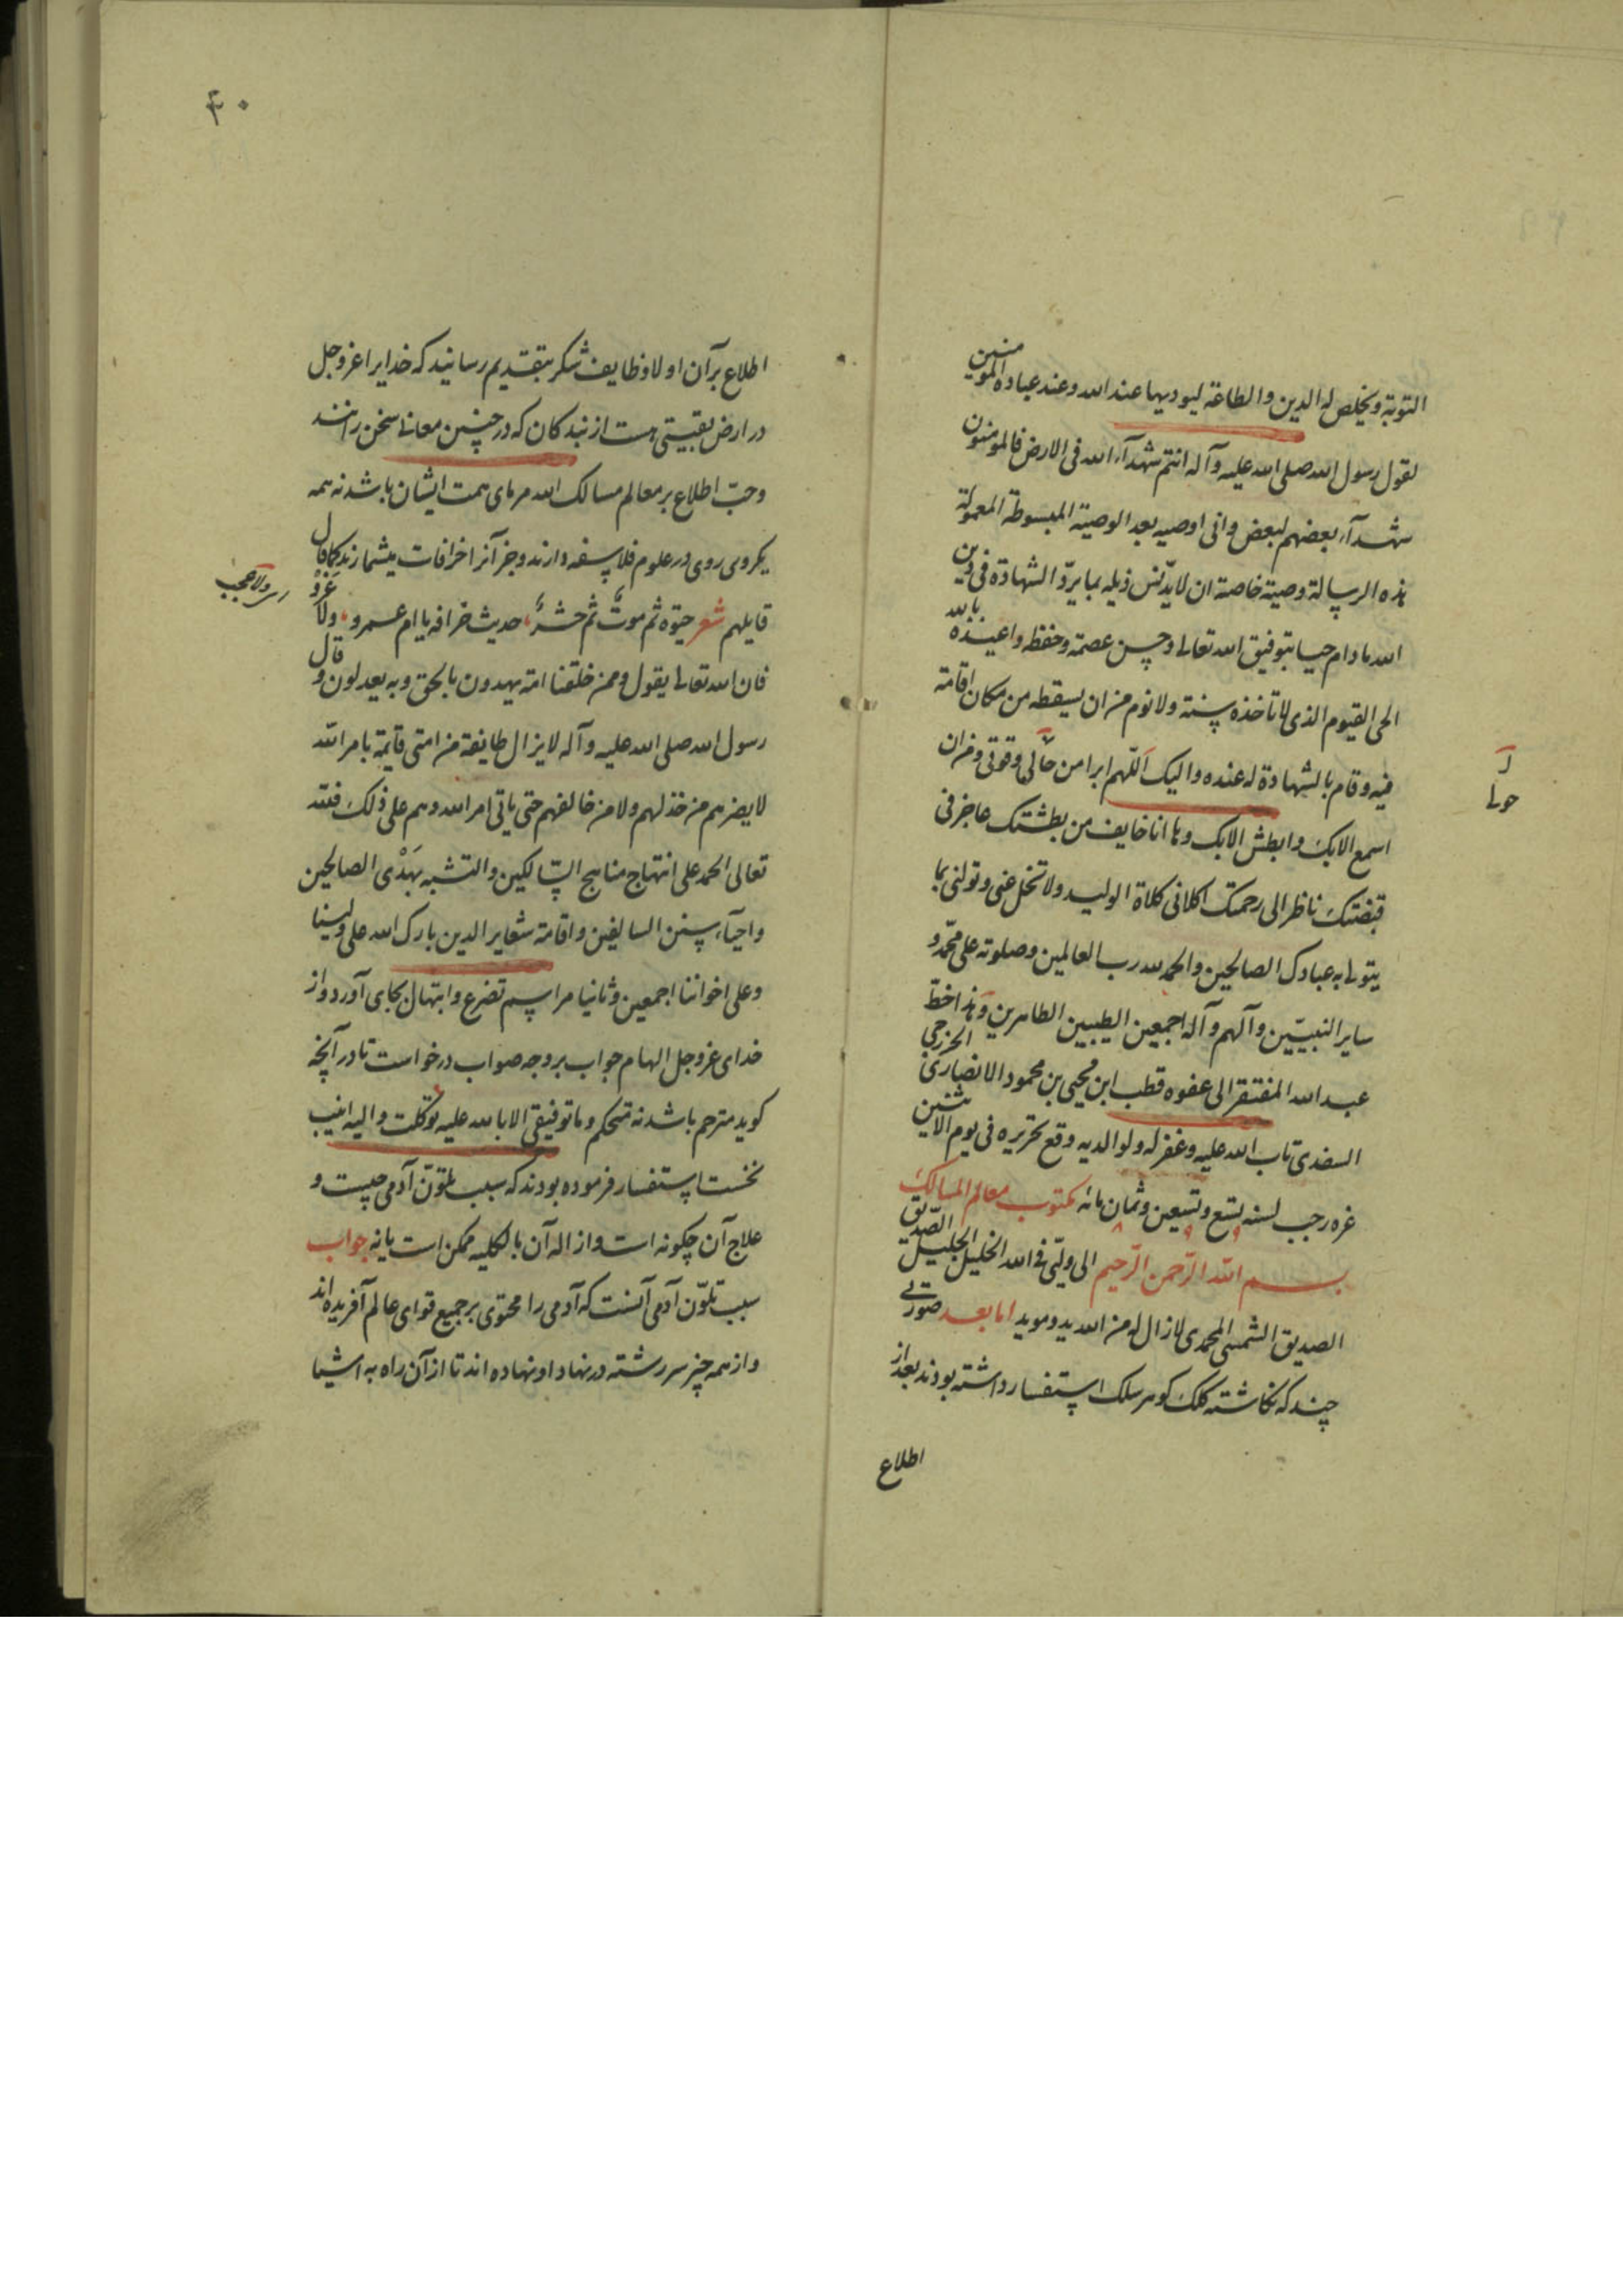 التوبة ويخلص له الدين والطاعة ليوديها عند الله وعند عباده المومنين
لقول رسول الله صلى الله عليه وآله انتم شهدآء الله فى الارض فالمومنون
شهدآء بعضهم لبعض وانى اوصيه بعد الوصية المبسوطة المعمولة
هذه الرسالة وصية خاصة ان لا يدنس ذيله بما يردّ الشهادة فى دين
الله مادام حيا بتوفيق الله تعالى وحسن عصمة وحفظه واعيذه بالله
الحى القيوم الذى لا تاخذه سنة ولا نوم من ان يسقطه من مكان اقامة
فيه وقام بالشهادة له عنده واليك اللّهم ابرا من حالى وقوتى ومن ان
اسمع الا بك وابطش الا بك وها انا خايف من بطشتك عاجز فى
قبضتك ناظر الى رحمتك اكلانى كلاة الوليد ولا تخل عنى وتولنى بما
يتولى به عبادك الصالحين والحمد لله رب العالمين وصلوته على محمّد و
ساير النبيّين وآلهم وآله اجمعين الطيبين الطاهرين وهذا خطّ
عبد الله المفتقر الى عفوه قطب ابن محيى بن محمود الانصارى الخزرجى
السعدى تاب الله عليه وغفر له ولوالديه وقع تحريره فى يوم الاثنين
غره رجب لسنه تسع وتسعين وثمان مائه مكتوب معالم المسالك
بسم الله الرّحمن الرّحيم الى وليّى فى الله الخليل الجليل الصّديق
الصديق الشمسى المحمدى لازال له من الله يد ومويد اما بعد صورتى
چند كه نكاشته كلك كوهر سلك استفسار داشته بودند بعد از
اطلاع
حولى
۴۰
اطلاع بر آن اولا وظايف شكر بتقديم رسانيد كه خدايرا عز وجل
در ارض بقيتى هست از بندكان كه در چنين معانى سخن رانند
وحبّ اطلاع بر معالم مسالك الله مرماى همت ايشان باشد نه همه
يكروى روى در علوم فلاسفه دارند وجز آنرا خرافات ميشمارند كما قال
قايلهم شعر حيٰوه ثم موتٌ ثم حشرٌ حديث خرافه يا ام عمرو ولا غَرْوَ
فان الله تعالى يقول وممن خلقنا امة يهدون بالحق وبه يعدلون وقال
رسول الله صلى الله عليه وآله لا يزال طايفة من امتى قايمة بامر الله
لا يضرهم من خذلهم ولا من خالفهم حتى ياتى امر الله وهم على ذلك فلله
تعالى الحمد على انتهاج مناهج السّالكين والتشبه بهَدْى الصالحين
واحيآء سنن السالفين واقامة شعاير الدين بارك الله على ولينا
وعلى اخواننا اجمعين وثانيا مراسم تضرع وابتهال بجاى آورد واز
خداى عز وجل الهام جواب بر وجه صواب درخواست تا در آنچه
كويد مترحم باشد نه متحكم وما توفيقى الا بالله عليه توكلت واليه انيب
نخست استفسار فرموده بودند كه سبب تلوّن آدمى چيست و
علاج آن چكونه است وازاله آن بالكليه ممكن است يا نه جواب
سبب تلوّن آدمى آنست كه آدمى را محتوى بر جميع قواى عالم آفريده اند
واز همه چيز سر رشته در نهاد او نهاده اند تا از آن راه به اشيا
اى ولا عجب